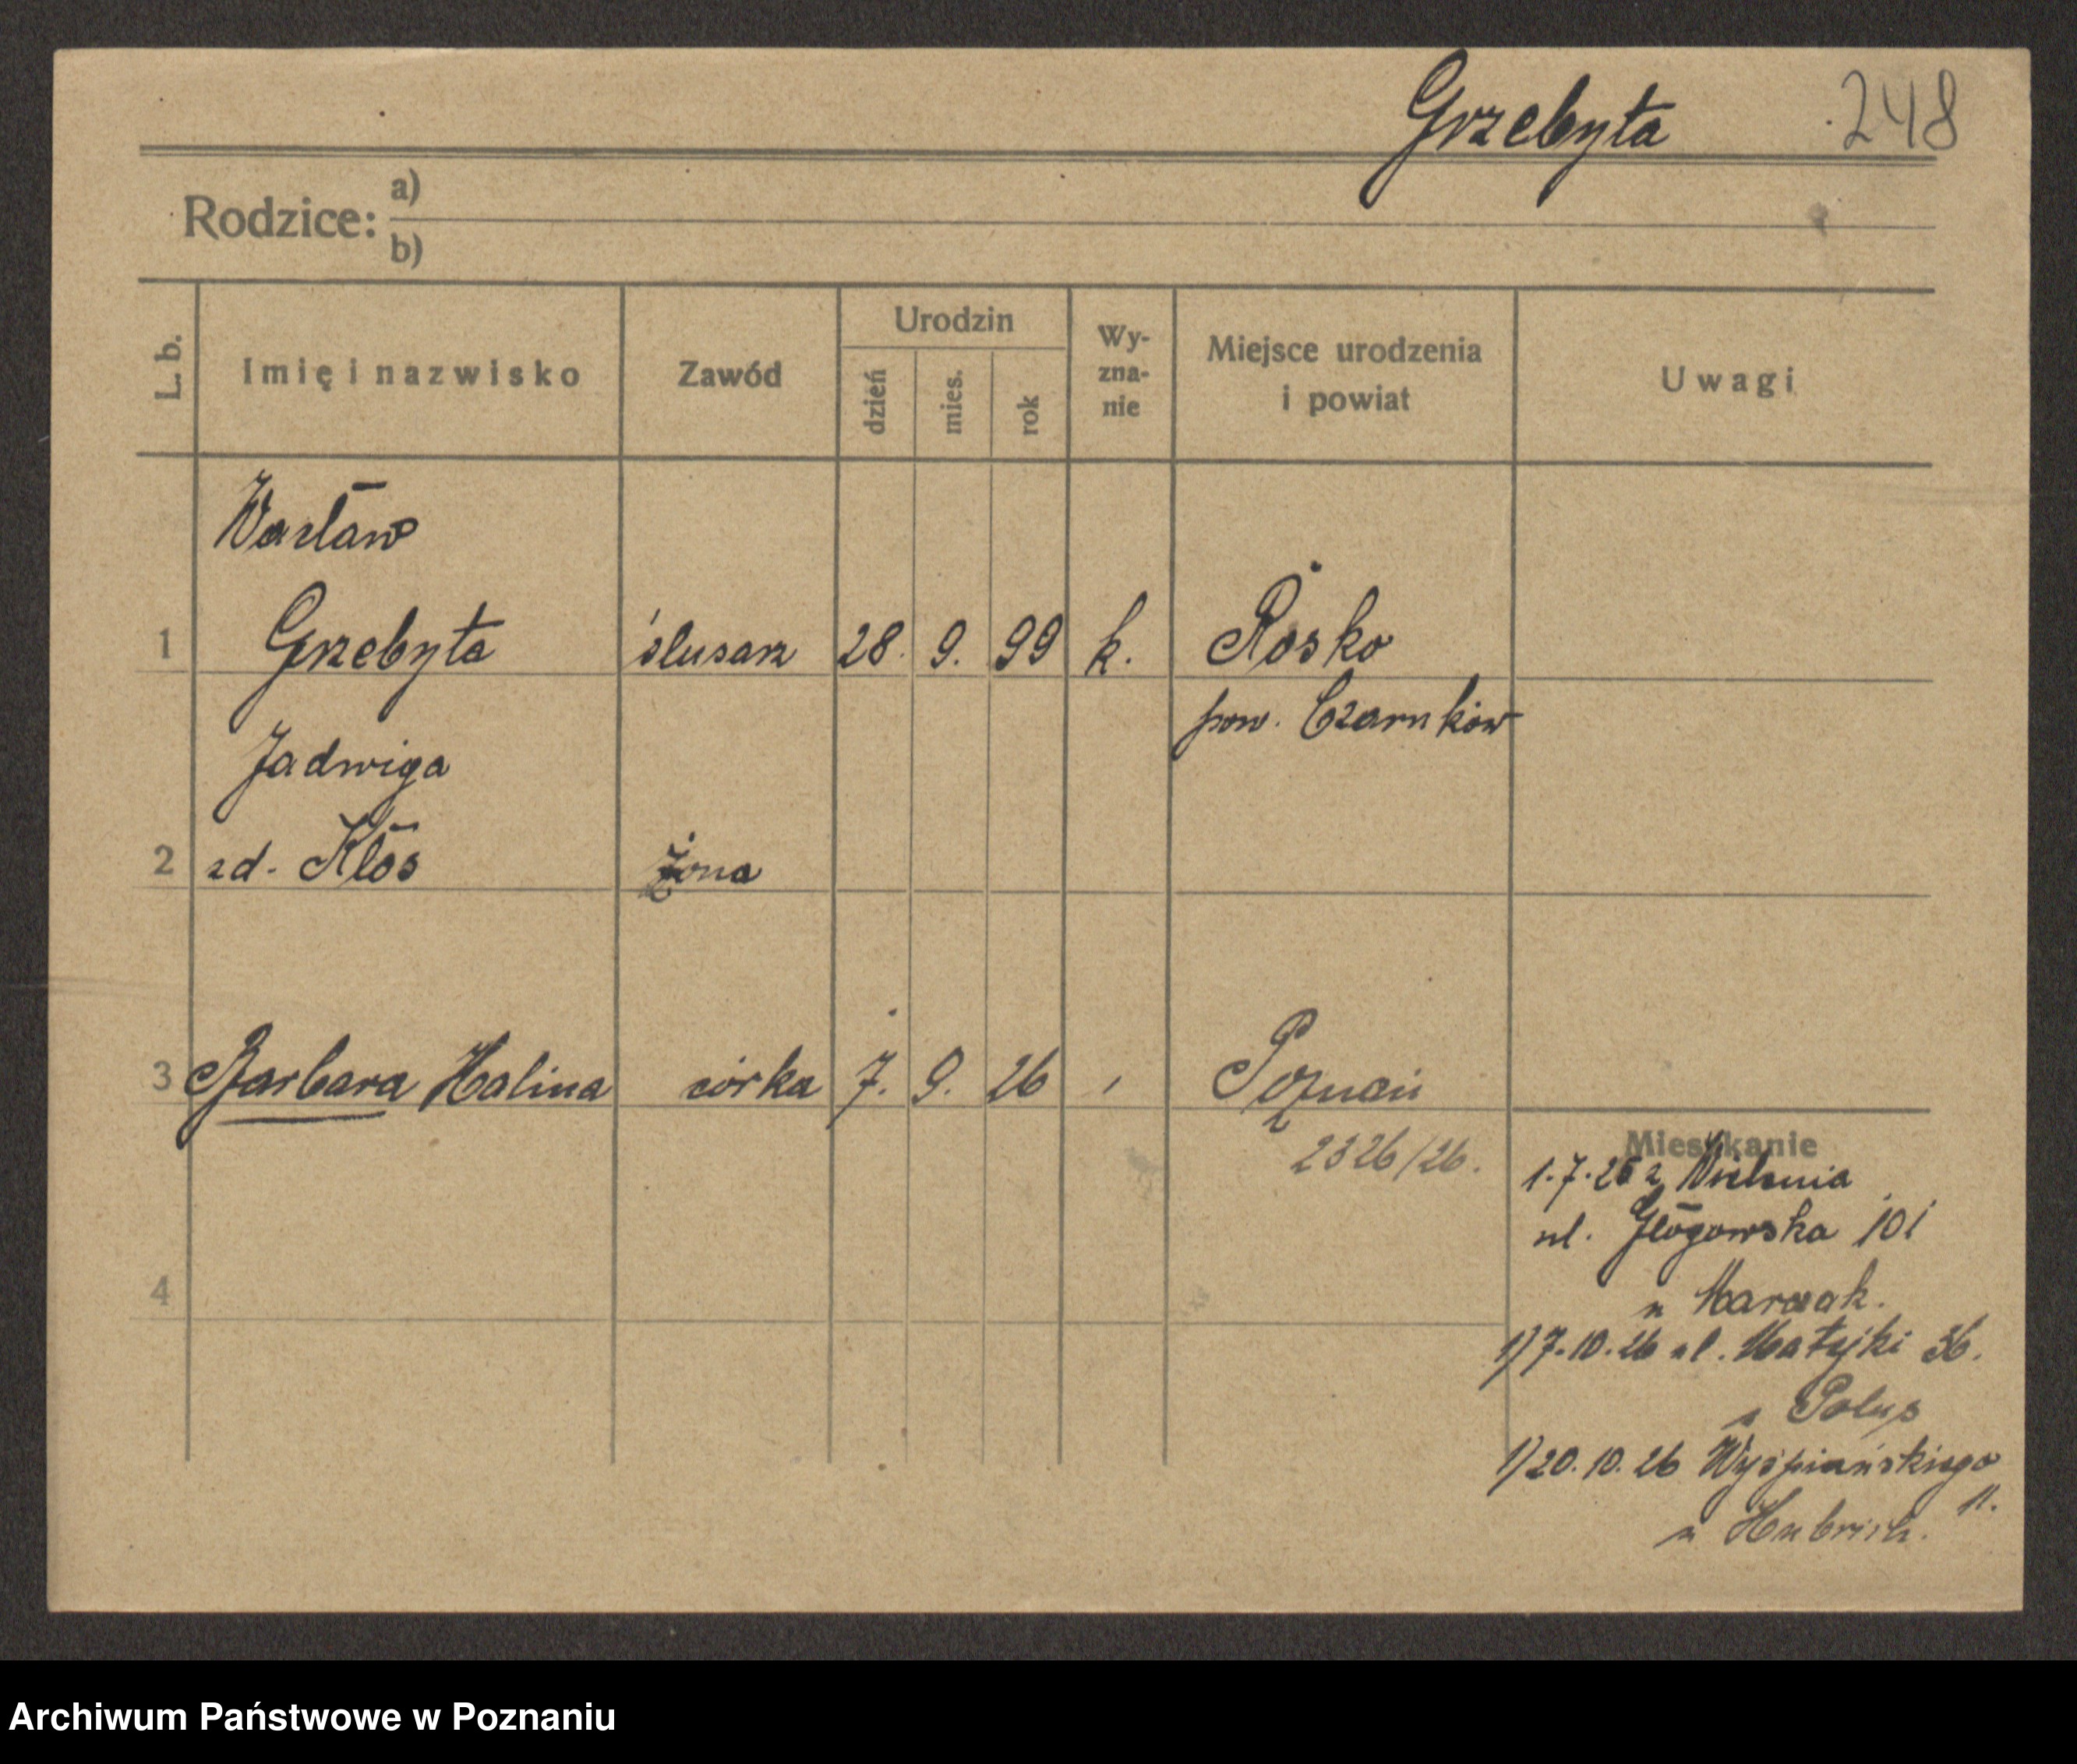 Grzebyta 248
Rodzice: a)
b)
L. b. Imię i nazwisko Zawód Urodzin dzień mies. rok Wy-zna-nie Miejsce urodzenia i powiat Uwagi
Wacław
1 Grzebyta ślusarz 28. 9. 99 k. Rosko
pow. Czarnków
Jadwiga
2 zd. Kłos żona
3 Barbara Halina córka 7. 9. 26 Poznań
2326/26.
Mieszkanie
1.7.26 z Wielenia
ul. Głogowska 101
u
4
1) 7.10.26 ul. Matejki 36.
Polus
1) 20.10.26 Wyspiańskiego
11.
u Hubrich.
Archiwum Państwowe w Poznaniu